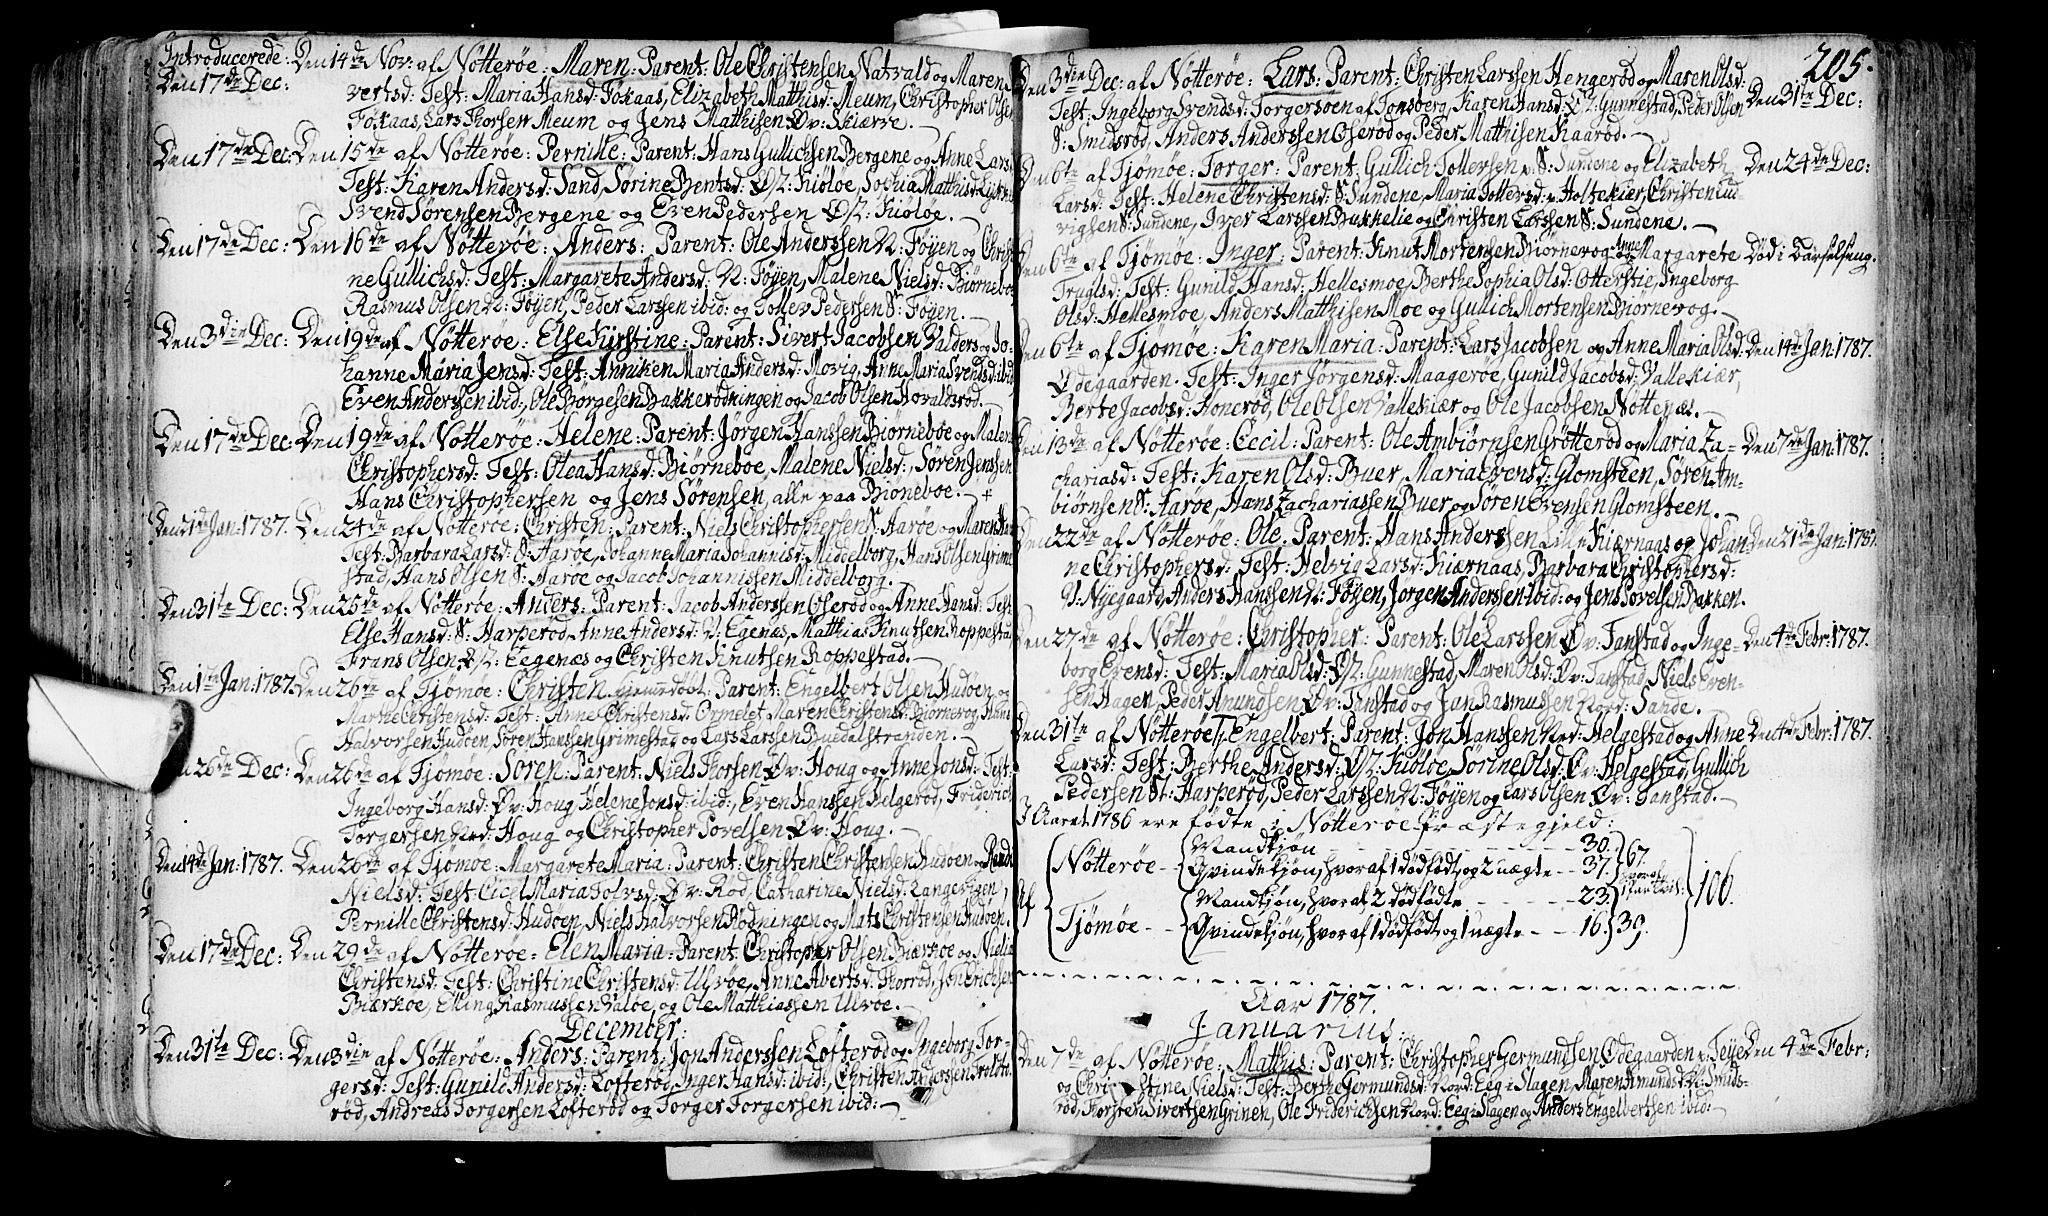 Introducerede: Den 14de Nov: af Nötteröe: Maren: Parent: Ole Christensen Natvald og Maren
Den 17de Dec: vertsd: Test: Maria Hansd: Fokaas, Elizabeth Mathisd: Meum, Christopher Olsen
Fokaas, Lars Thorsen Meum og Jens Mathisen Øv: Skiærve.
Den 17de Dec: Den 15de af Nötteröe: Pernille: Parent: Hans Gullichsen Bergene og Anne Lars
Test: Karen Andersd: Sand, Sørine Bentsd: Kiöløe, Sophia Mathisd:
Svend Sørensen Bergene og Even Pedersen Kiöløe.
Den 17de Dec: Den 16de af Nötteröe: Anders: Parent: Ole Anderssen N: Föyen og Christi
ne Gullichsd: Test: Margarete Andersd: N: Föyen, Malene Nielsd: Biørneboe
Rasmus Olsen N: Föyen, Peder Larsen ibid: og Tollev Pedersen S: Föyen.
Den 3die Dec: Den 19de af Nötteröe: Else Kirstine: Parent: Sivert Jacobsen Valders og Jo-
hanne Maria Jensd: Test: Anniken Maria Andersd: Movig, Anne Maria Svendsd: ibid
Even Anderssen ibid:, Ole Borgesen Bakkerødningen og Jacob Olsen Hovaldsrød.
Den 17de Dec: Den 19de af Nötteröe: Helene: Parent: Jørgen Hanssen Biørneboe og Malene
Christophersd: Test: Olea Hansd: Biørneboe, Malene Nielsd:, Søren Jenssen
Hans Christophersen og Jens Sørensen, alle paa Biøneboe. +
Den 21de Jan: 1787. Den 24de af Nötteröe: Christen: Parent: Niels Christophersen S: Aarøe og Maren
Test: Barbara Larsd: S: Aarøe, Johanne Maria Johannisd: Middelborg, Hans Olsen Grime
stad, Hans Olsen S: Aarøe og Jacob Johannissen Middelborg.
Den 31te Dec: Den 25de af Nötteröe: Anders: Parent: Jacob Anderssen Oserød og Anne Hansd: Test:
Else Hansd: S: Harperød, Anne Andersd: V: Egenæs, Mathias Knutsen Roppestad
Frans Olsen Eegenæs og Christen Knutsen Roppestad.
Den 1te Jan: 1787. Den 26te af Tjömöe: Christen hjemmedöbt: Parent: Engelbert Olsen Hudöen og
Marthe Christensd: Test: Anne Christensd: Ormelet Maren Christensd: Biørnevog, Hans
Halvorsen Hudöen, Søren Hanssen Grimestad og Lars Larssen Buedalstranden.
Den 26de Dec: Den 26de af Tjömöe: Sören: Parent: Niels Thorsen Øv: Houg og Anne Jonsd: Test:
Ingeborg Hansd: Øv: Houg Helene Jonsd: ibid:, Even Hanssen Helgerød, Friderich
Torgersen Ned: Houg og Christopher Povelsen Øv: Houg.
Den 14de Jan: 1787. Den 26de af Tjömöe: Margarete Maria: Parent: Christen Christensen Hudöen og Randi
Nielsd: Test: Cicel Maria Tolvsd: Øv: Röd, Catharine Nielsd: Langevigen,
Pernille Christensd: Hudöen, Niels Halvorsen Rødningen og Mats Christensen Hudöen.
Den 17de Dec: Den 29de af Nötteröe: Elen Maria: Parent: Christopher Olsen Biærkøe og Nielia
Christensd: Test: Christine Christensd: Ulvøe, Anne Abertsd: Thorrød, Jon Erichsen
Biærkøe, Elling Rasmussen Valøe, og Ole Mathiassen Ulvøe.
December:
Den 31te Dec: Den 3die af Nötteröe: Anders: Parent: Jon Anderssen Lofterød og Ingeborg Tor-
gersd: Test: Gunild Andersd: Lofterød, Inger Hansd: ibid:, Christen Anderssen
rød, Andreas Torgersen Lofterød og Torger Torgersen ibid:
205.
Den 3die Dec: af Nötteröe: Lars: Parent: Christen Larssen Hengerød og Maren Olsd: Den 31te Dec:
Test: Ingeborg Svendsd: Torgersöen af Tonsberg, Karen Hansd: Gunnestad, Peder Olsen
S: Smidsrød, Anders Anderssen Oserød og Peder Mathisen Kaarød.
Den 6te af Tjömöe: Torger: Parent: Gullich Tollefsen S: Sundene og Elizabeth Den 24de Dec:
Larsd: Test: Helene Christensd: S: Sundene, Maria Tollersd: Holtekiær, Christen Lud-
vigsen S: Sundene, Iver Larssen Bukkelie og Christen Larssen S: Sundene.
Den 6te af Tjömöe: Inger: Parent: Knut Mortensen Biørnevog og Anne Margarete Död i Barselseng.
Truglsd: Test: Gunild Hansd: Hellesmoe, Berthe Sophia Olsd: Otterstie, Ingeborg
Olsd: Hellesmoe, Anders Mathisen Moe og Gullich Mortensen Biørnevog.
Den 6te af Tjömöe: Karen Maria: Parent: Lars Jacobsen og Anne Maria Olsd: Den 14de Jan: 1787.
Ødegaarden. Test: Inger Jørgensd: Maagerøe, Gunild Jacobsd: Vallekiær,
Berte Jacobsd: Honerød, Ole Olsen Vallekiær og Ole Jacobsen Nøttenæs.
Den 13de af Nötteröe: Cecil: Parent: Ole Ambiørnsen Grötterød og Maria Za- Den 7de Jan: 1787.
chariasd: Test: Karen Olsd: Buer, Maria Evensd: Glomsteen, Søren Am-
biørnsen S: Aarøe, Hans Zachariassen Buer og Søren Evensen Glomsteen.
Den 22de af Nötteröe: Ole: Parent: Hans Anderssen Lille Kiærnaas og Johan- Den 21de Jan: 1787.
ne Christophersd: Test: Helvig Larsd: Kiærnaas, Barbara Christophersd:
N: Nyegaard, Anders Hanssen N: Föyen, Jørgen Anderssen ibid: og Jens Povelsen Bakken.
Den 27de af Nötteröe: Christopher: Parent: Ole Larssen Øv: Tanstad og Inge- Den 4de Febr: 1787.
borg Evensd: Test: Maria Olsd: Gunnestad, Maren Olsd: Øv: Tanstad, Niels Even-
sen Hagen, Peder Amundsen Øv: Tanstad og Jan Rasmussen Nord: Sande.
Den 31te af Nötteröe: Engelbert: Parent: Jon Hanssen Ned: Helgestad og Anne Den 4de Febr: 1787.
Larsd: Test: Berthe Andersd: Kiöløe, Sørine Olsd: Öv: Helgestad, Gullich
Pedersen St: Harperød, Peder Larssen N: Föyen og Lars Olsen Øv: Tanstad.
I Aaret 1786 ere födte i Nötteröe Præstegjeld:
Af Nötteröe - Mandkjön - - - 30.
Qvindekjön, hvoraf 1 dödfödt, og 2 uægte - - 37. 67.
Tjömöe - - Mandkjön, hvoraf 2 dödfödte - - - 23.
Qvindekjön, hvoraf 1 dödfödt, og 1 uægte - - 16. 39. 106.
Aar 1787.
Januarius:
Den 7de af Nötteröe: Mathis: Parent: Christopher Germundsen Ødegaarden Den 4de Febr:
og Christine Nielsd: Test: Berthe Germundsd: Nord: Eeg i Slagen, Maren Amundsd: V: Smids-
rød, Thorsten Sivertsen Grinen, Ole Friderichsen Nord: Eeg i Slagen og Anders Engelbertsen ibid: